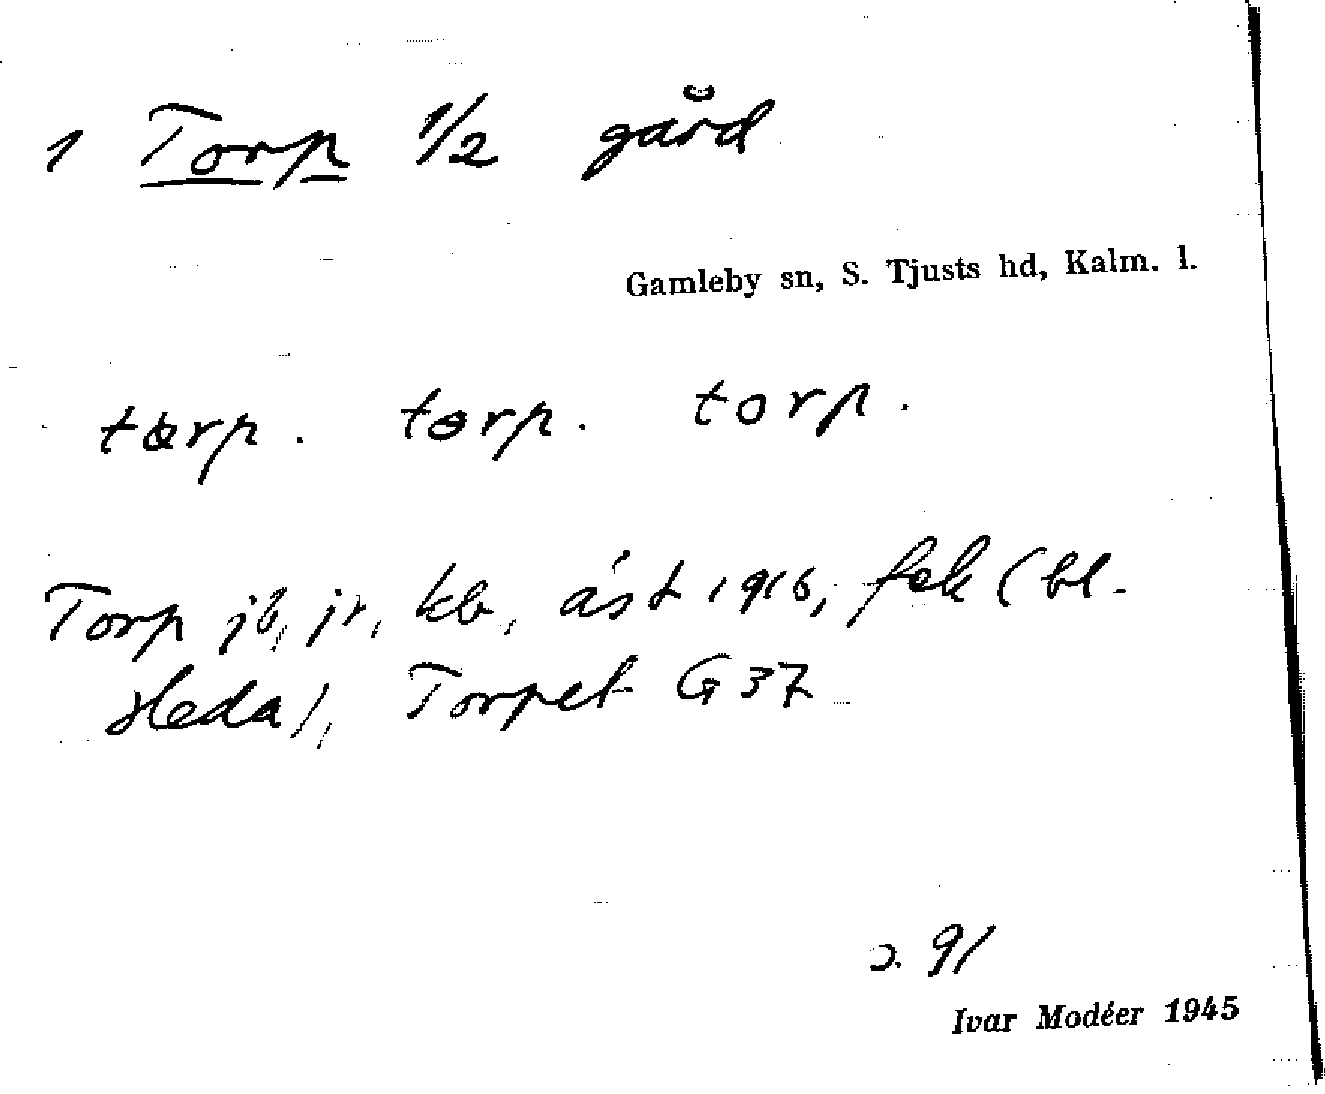 1 Torp 1/2 gård
Gamleby sn, S. Tjusts hd, Kalm. l.
tɵrp. tɵrp. torp.
Torp jb, jr, kb, ást 1916, fek (bl.
Heda), Torpet G 37
s. 91
Ivar Modéer 1945